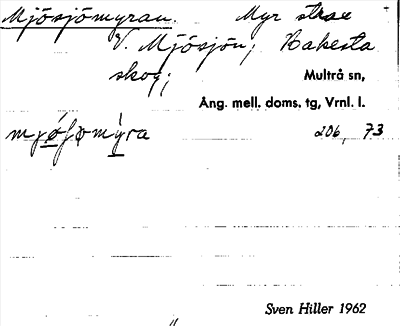 Mjösjömyran. Myr strax
V. Mjösjön; Bakesta
skog; Multrå sn,
Ång. mell. doms. tg, Vrnl. l.
206, 73
Sven Hiller 1962